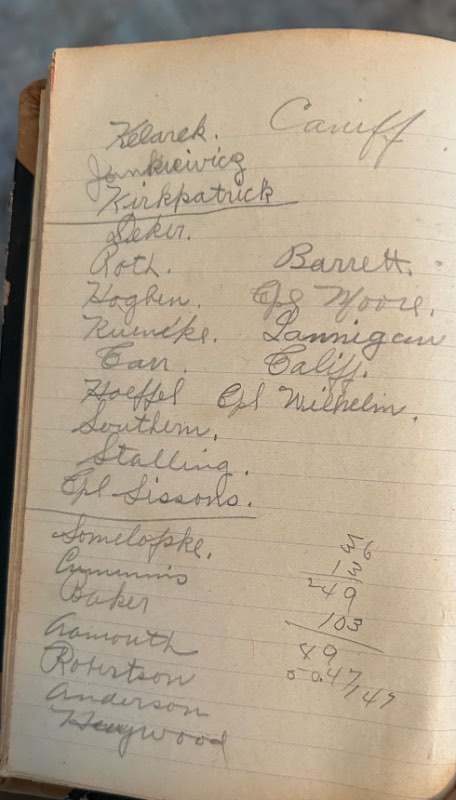 Kelarek. Caniff
Jankieivicz
Kirkpatrick
Seker.
Roth. Barrett.
Hoghen. Cpl Moore.
Lannigan
Carr. Califf.
Hoeffel Cpl Wilhelm.
Southern.
Stalling.
Cpl Sissons.
Somelofske.
Cummins
Baker
Aamouth
Robertson
Anderson
Haywood
103